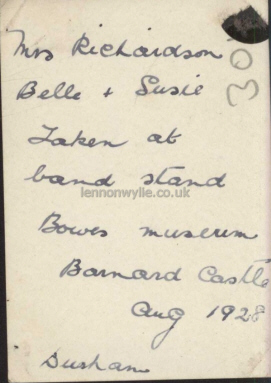 Mrs Richardson
30
Belle + Susie
Taken at
band stand
lennonwylie.co.uk
Bowes museum
Barnard Castle
Aug 1928
Durham